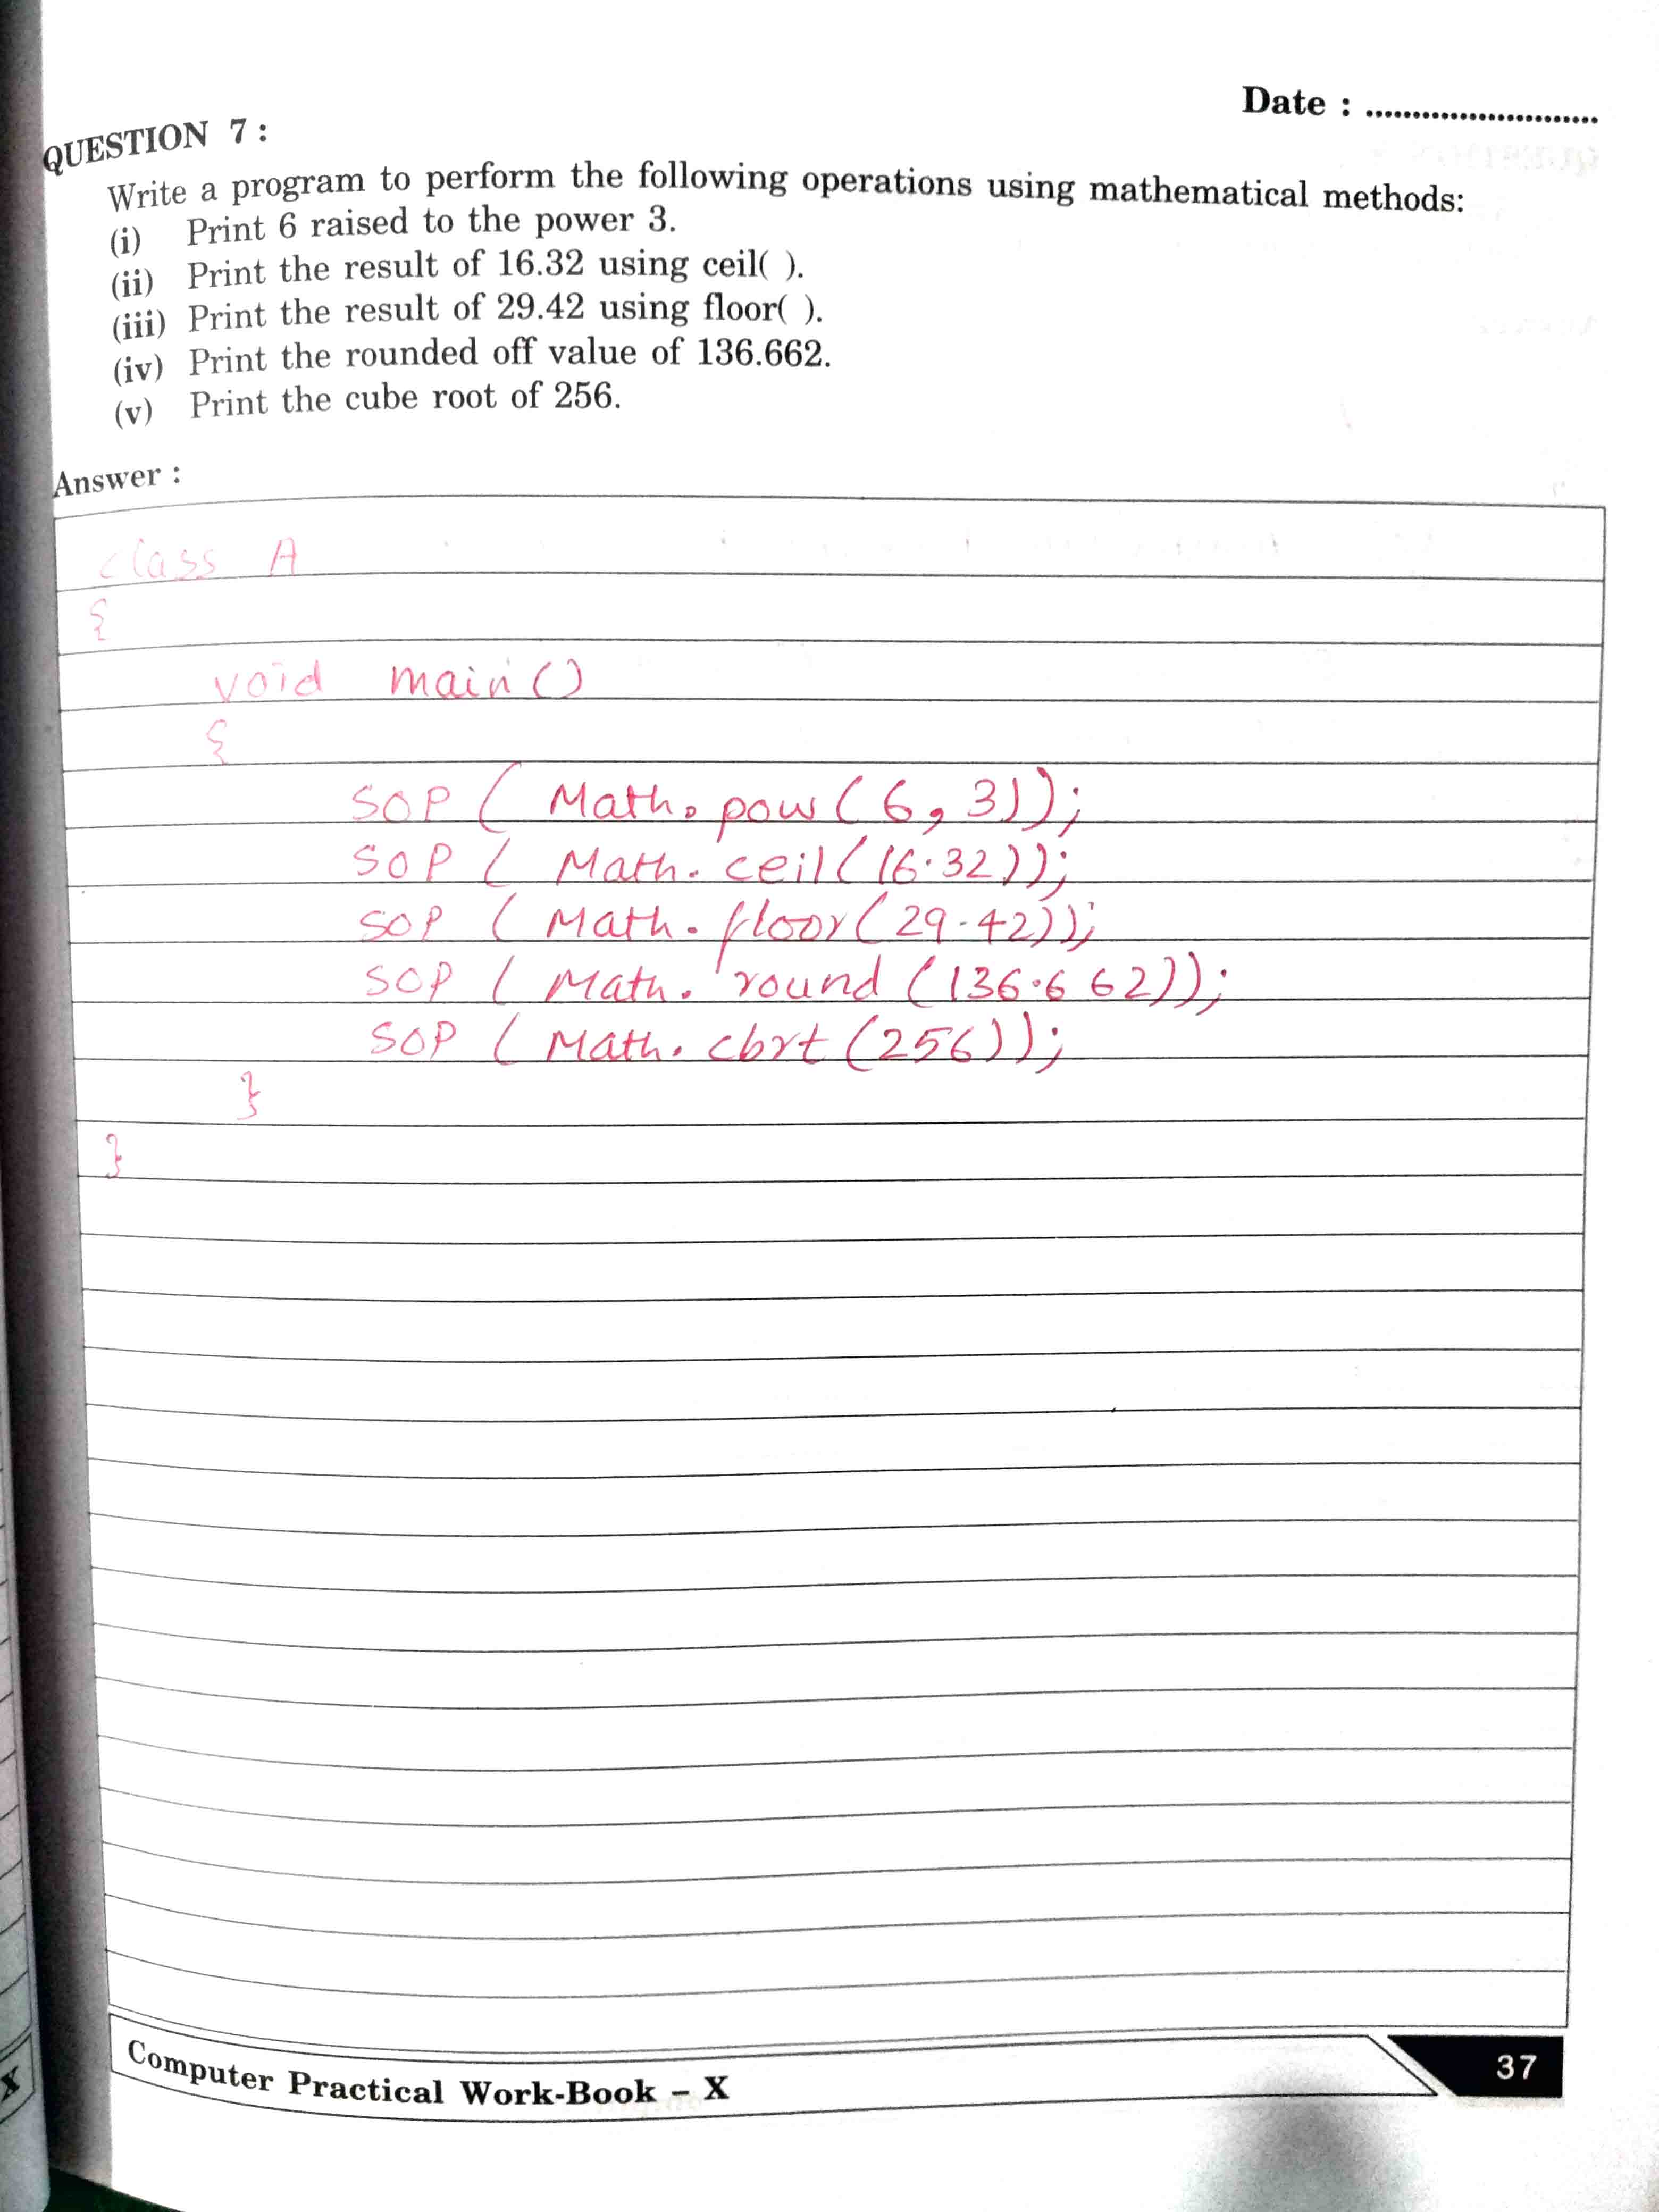 Date : ..........................
QUESTION 7 :
Write a program to perform the following operations using mathematical methods:
(i) Print 6 raised to the power 3.
(ii) Print the result of 16.32 using ceil( ).
(iii) Print the result of 29.42 using floor( ).
(iv) Print the rounded off value of 136.662.
(v) Print the cube root of 256.
Answer :
class A
{
void main()
{
SOP ( Math. pow ( 6, 3));
SOP ( Math. ceil ( 16.32));
SOP ( Math. floor ( 29.42));
SOP ( Math. round ( 136.662));
SOP ( Math. cbrt (256));
}
}
Computer Practical Work-Book – X
37